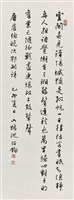 雲開遠見漢陽城猶是孤帆一日程估客晝眠知浪
靜舟人夜語覺潮生三湘愁鬢逢秋色萬里歸心對月明
舊業已隨征戰盡更堪江上鼓鼙聲
盧綸晚次鄂州詩